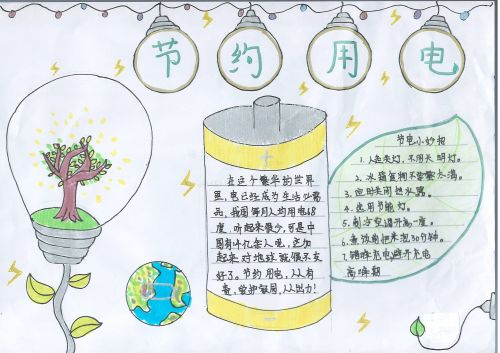 节约用电
在这个繁华的世界
里,电已经成为生活必需
品,我国每月人均用电68
度,听起来很少,可是中
国有十几亿人呢,这加
起来对地球就很不友
好了。节约用电,人人有
责,爱护,人人出力!
节电小妙招
1.人走关灯,不用长明灯。
2.冰箱食物不要塞太满。
3.应关闭热水器。
4.使用节能灯。
5.制冷空调升高一度。
6.煮饭前把米泡30分钟。
7.错峰充电避开充电
高峰期